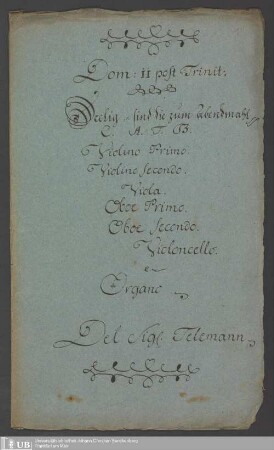 Dom: 11 post Trinit:
Seelig sind die zum Abendmahl
C. A. T. B.
Violino Primo.
Violino Secondo.
Viola.
Oboe Primo.
Oboe Secondo.
Violoncello.
e
Organo
Del Sigl. Telemann
UB
Universitätsbibliothek Johann Christian Senckenberg
Frankfurt am Main